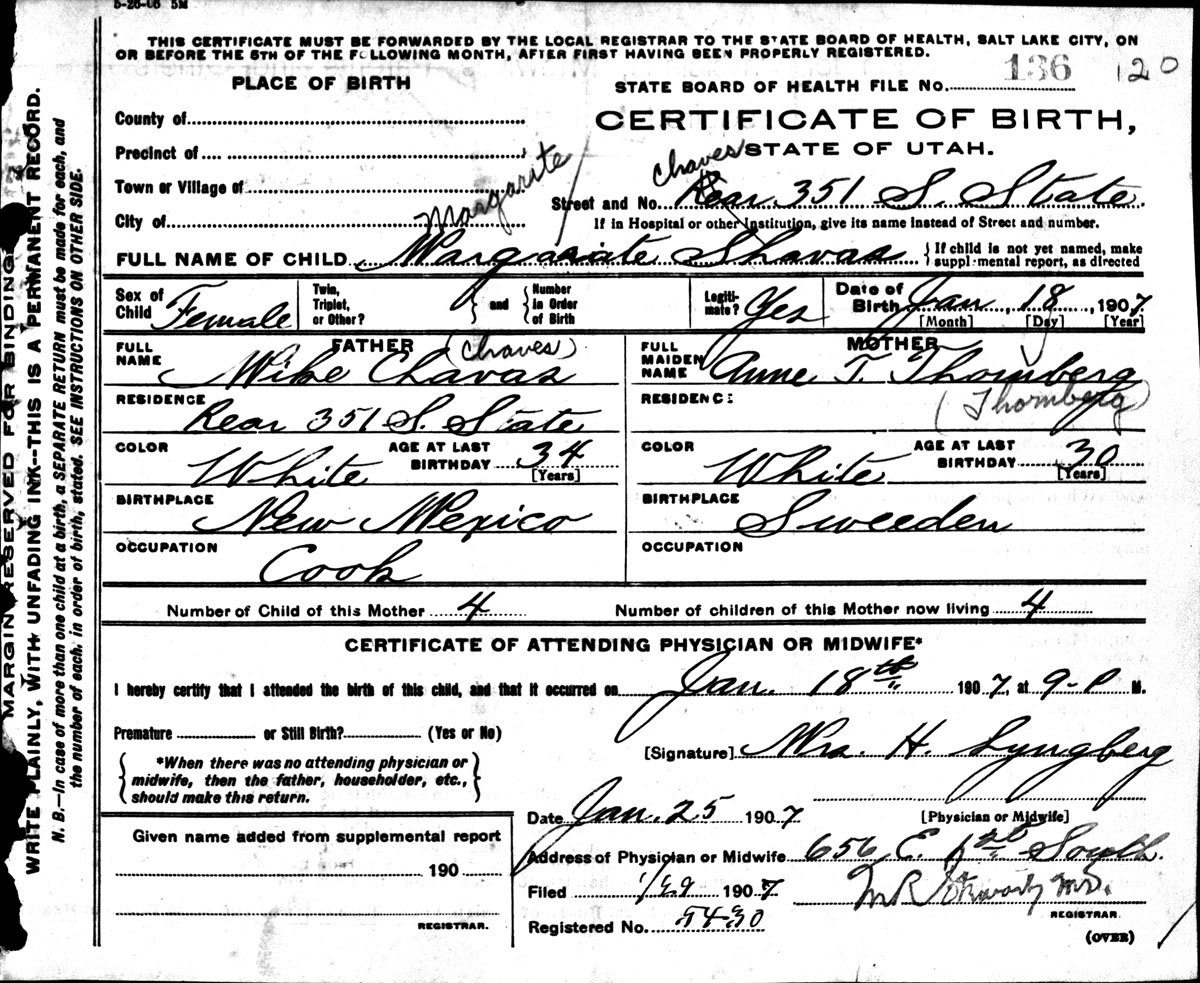 5-26-06 5M
THIS CERTIFICATE MUST BE FORWARDED BY THE LOCAL REGISTRAR TO THE STATE BOARD OF HEALTH, SALT LAKE CITY, ON
OR BEFORE THE 5TH OF THE FOLLOWING MONTH, AFTER FIRST HAVING BEEN PROPERLY REGISTERED.
136 120
PLACE OF BIRTH
STATE BOARD OF HEALTH FILE No.
County of
CERTIFICATE OF BIRTH,
Precinct of
STATE OF UTAH.
Chaves
Town or Village of
Street and No. Rear 351 S. State
City of
Margarite
If in Hospital or other Institution, give its name instead of Street and number.
FULL NAME OF CHILD Margariate Shavas
{ If child is not yet named, make
supplemental report, as directed
Sex of Child Female
Twin, Triplet, or Other? } and { Number in Order of Birth
Legitimate? Yes
Date of Birth Jan 18, 1907
[Month] [Day] [Year]
FATHER
FULL NAME Mike Chavas (Chaves)
RESIDENCE Rear 351 S. State
COLOR White AGE AT LAST BIRTHDAY 34 [Years]
BIRTHPLACE New Mexico
OCCUPATION Cook
MOTHER
FULL MAIDEN NAME Anne T. Thornberg
RESIDENCE (Thornberg)
COLOR White AGE AT LAST BIRTHDAY 30 [Years]
BIRTHPLACE Sweeden
OCCUPATION
Number of Child of this Mother 4 Number of children of this Mother now living 4
CERTIFICATE OF ATTENDING PHYSICIAN OR MIDWIFE*
I hereby certify that I attended the birth of this child, and that it occurred on Jan. 18th 1907 at 9-P M.
Premature or Still Birth? (Yes or No)
[Signature] Mrs. H. Lyngberg
*When there was no attending physician or
midwife, then the father, householder, etc.,
should make this return.
Date Jan. 25 1907 [Physician or Midwife]
Given name added from supplemental report
190
REGISTRAR.
Address of Physician or Midwife 656 E. 1st South.
Filed 1907
M.D.
REGISTRAR.
Registered No. 5430
(OVER)
MARGIN RESERVED FOR BINDING.
WRITE PLAINLY, WITH UNFADING INK--THIS IS A PERMANENT RECORD.
N. B.—In case of more than one child at a birth, a SEPARATE RETURN must be made for each, and
the number of each, in order of birth, stated. SEE INSTRUCTIONS ON OTHER SIDE.